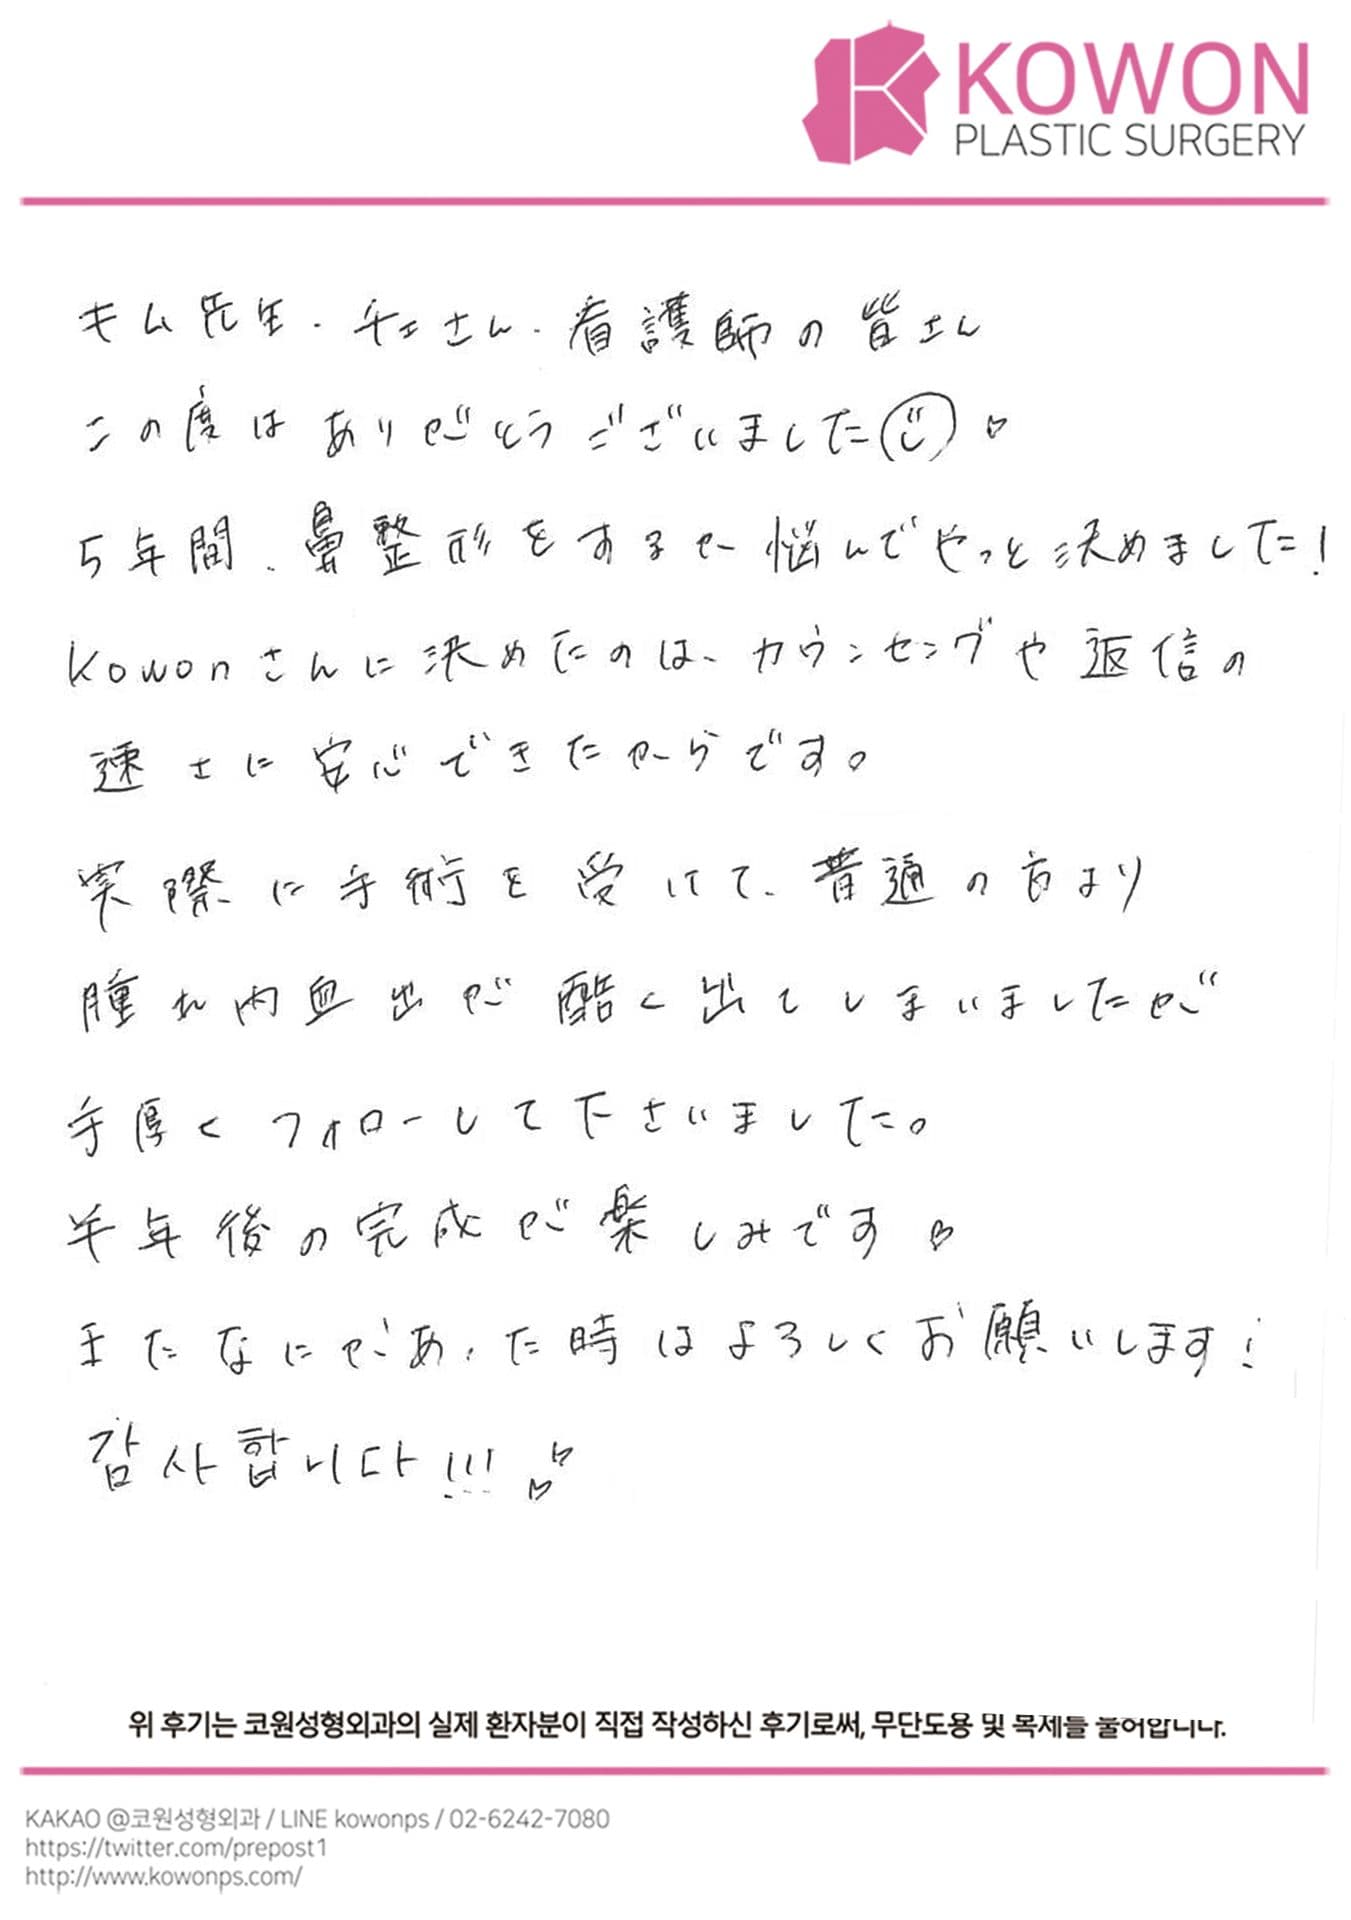 KOWON
PLASTIC SURGERY
キム先生.チェさん.看護師の皆さん
この度はありがとうございました♡
5年間、鼻整形をするか悩んでやっと決めました!
Kowonさんに決めたのは、カウンセングや返信の
速さに安心できたからです。
実際に手術を受けて、普通の方より
腫れ内血出が酷く出てしまいましたが
手厚くフォローして下さいました。
半年後の完成が楽しみです♡
またなにかあった時はよろしくお願いします!
감사합니다!!!♡♡
위 후기는 코원성형외과의 실제 환자분이 직접 작성하신 후기로써, 무단도용 및 복제를 불허합니다.
KAKAO @코원성형외과 / LINE kowonps / 02-6242-7080
https://twitter.com/prepost1
http://www.kowonps.com/